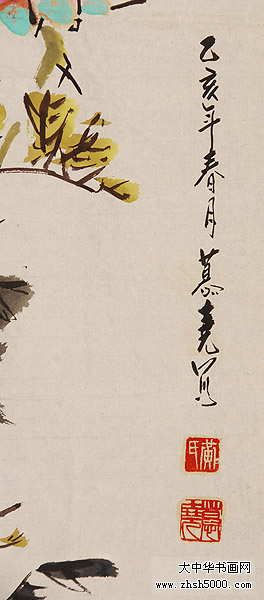 乙亥年春月慕尧写
黄氏
慕尧
大中华书画网
www.zhsh5000.com